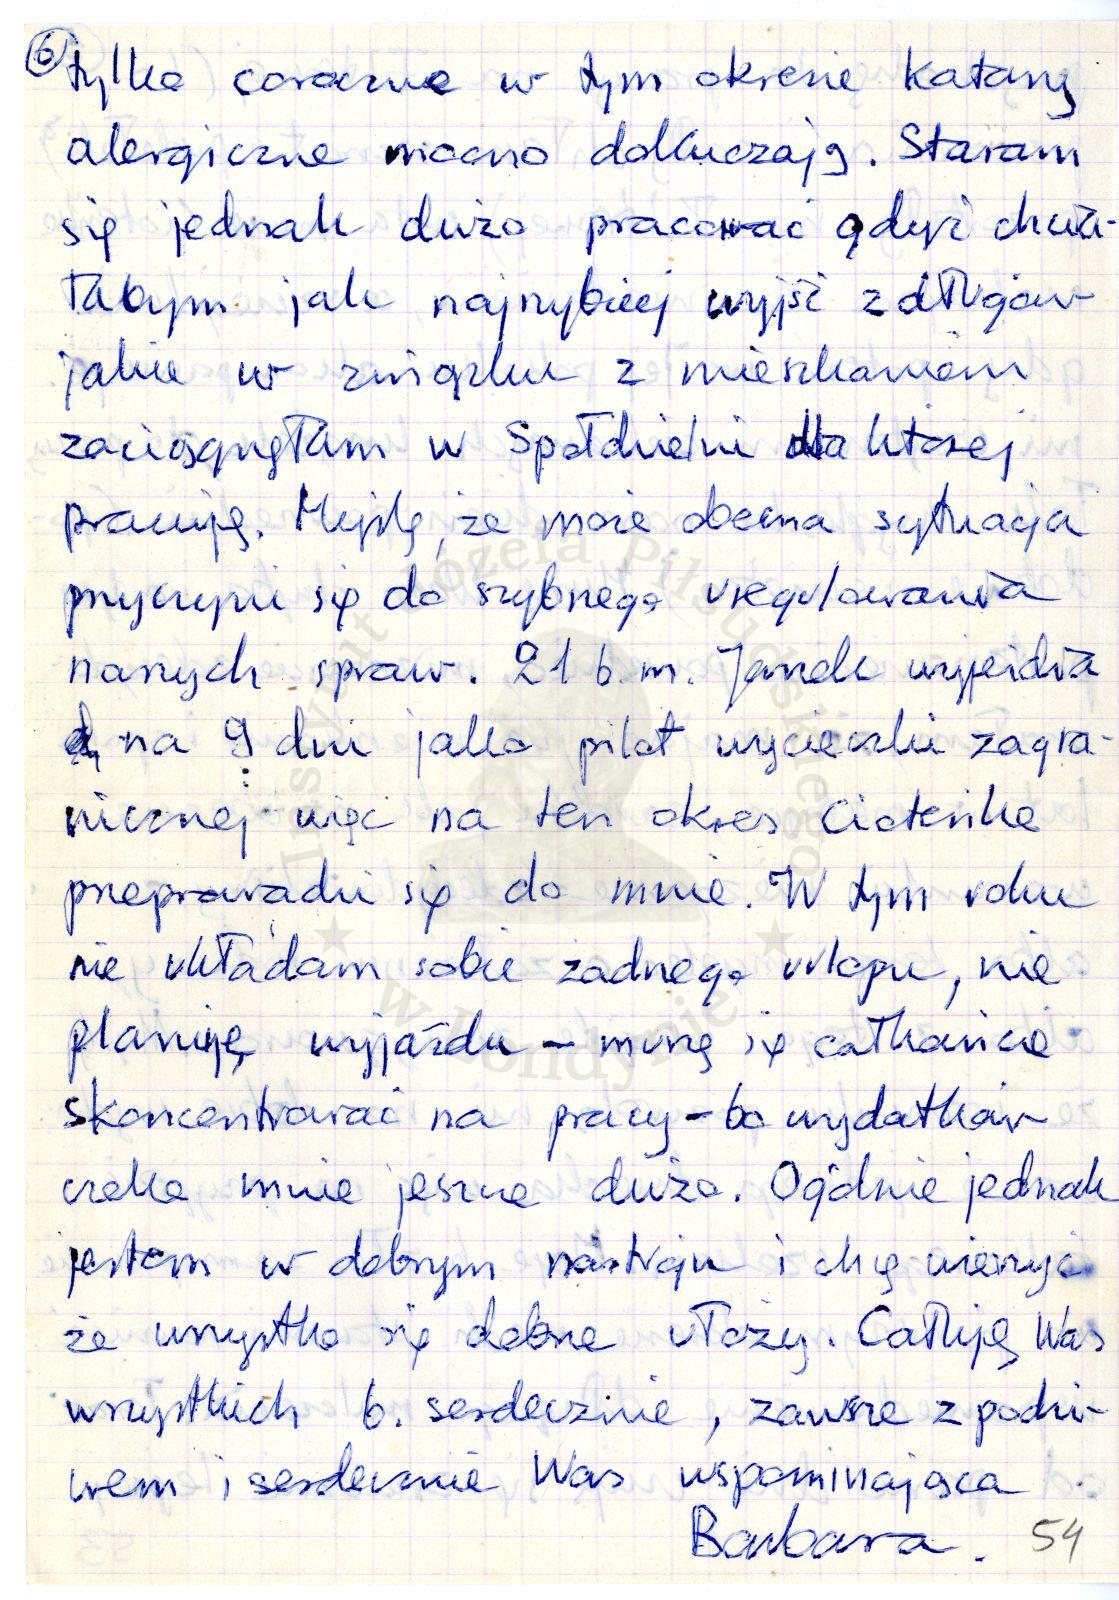 6
tylko coroczne w tym okresie katary
alergiczne mocno dokuczają. Staram
się jednak dużo pracować gdyż chcia-
łabym jak najszybciej wyjść z długów
jakie w związku z mieszkaniem
zaciągnęłam w Spółdzielni dla której
pracuję. Myślę, że może obecna sytuacja
przyczyni się do szybszego uregulowania
naszych spraw. 21 b.m. Janek wyjeżdża
na 9 dni jako pilot wycieczki zagra-
nicznej więc na ten okres Cioteńka
przeprowadzi się do mnie. W tym roku
nie układam sobie żadnego urlopu, nie
planuję wyjazdu – muszę się całkowicie
skoncentrować na pracy – bo wydatków
czeka mnie jeszcze dużo. Ogólnie jednak
jestem w dobrym nastroju i chcę wierzyć
że wszystko się dobrze ułoży. Całuję Was
wszystkich b. serdecznie, zawsze z podzi-
wem i serdecznie Was wspominająca
Barbara. 54
Instytut Józefa Piłsudskiego
w Londynie